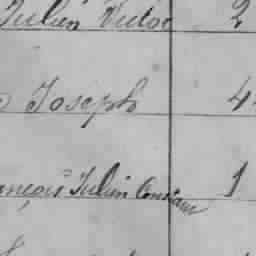 Julien Victor 2
Joseph 4
ançois Julien Constant 1